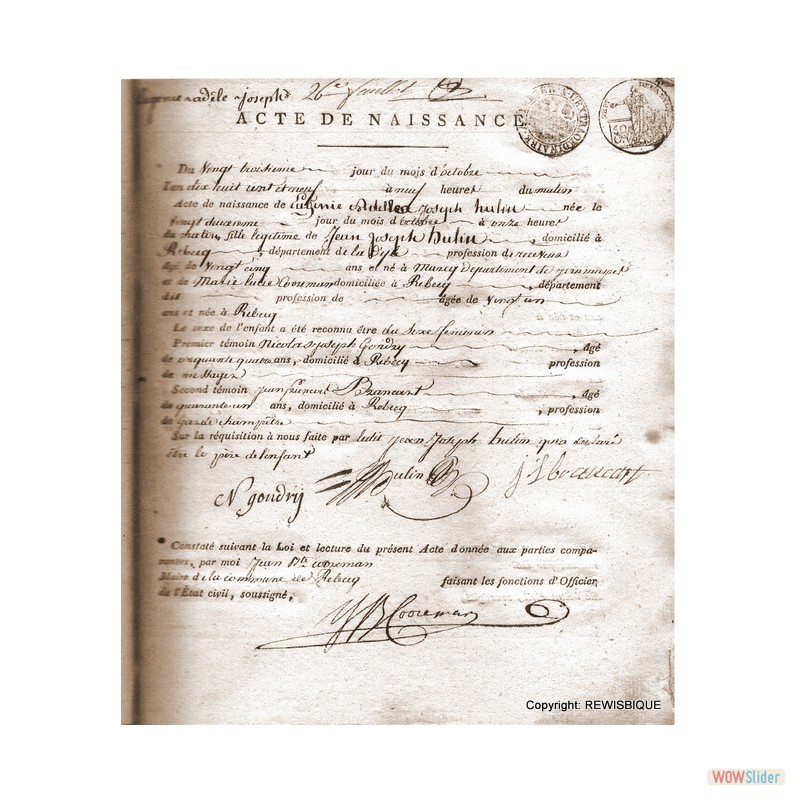 adèle joseph 26e feuillet
ACTE DE NAISSANCE
Du Vingt troisieme jour du mois d'octobre
l'an dix huit cent et neuf à neuf heures du matin
Acte de naissance de Eugenie Adele joseph hulin née le
Vingt deuxieme jour du mois d'octobre à onze heures
du matin, fille legitime de Jean joseph hulin, domicilié à
Rebecq, département de la Dyle profession de receveur
âgé de Vingt cinq ans et né à département de
et de Marie lucie Cooreman domiciliée à Rebecq, département
dit profession de âgée de Vingt un
ans et née à Rebecq
Le sexe de l'enfant a été reconnu être du Sexe feminin
Premier témoin Nicolas joseph Gondry, âgé
de cinquante quatre ans, domicilié à Rebecq profession
de messager
Second témoin jean francois Brancart, âgé
de quarante un ans, domicilié à Rebecq, profession
de garde champetre
Sur la réquisition à nous faite par ledit jean Joseph hulin qui a declaré
être le père de l'enfant
N gondry hulin j f brancart
Constaté suivant la Loi et lecture du présent Acte donnée aux parties compa-
rantes, par moi Jean Bte cooreman
Maire de la commune de Rebecq faisant les fonctions d'Officier
de l'État civil, soussigné,
JB Cooreman
Copyright: REWISBIQUE
WOWSlider